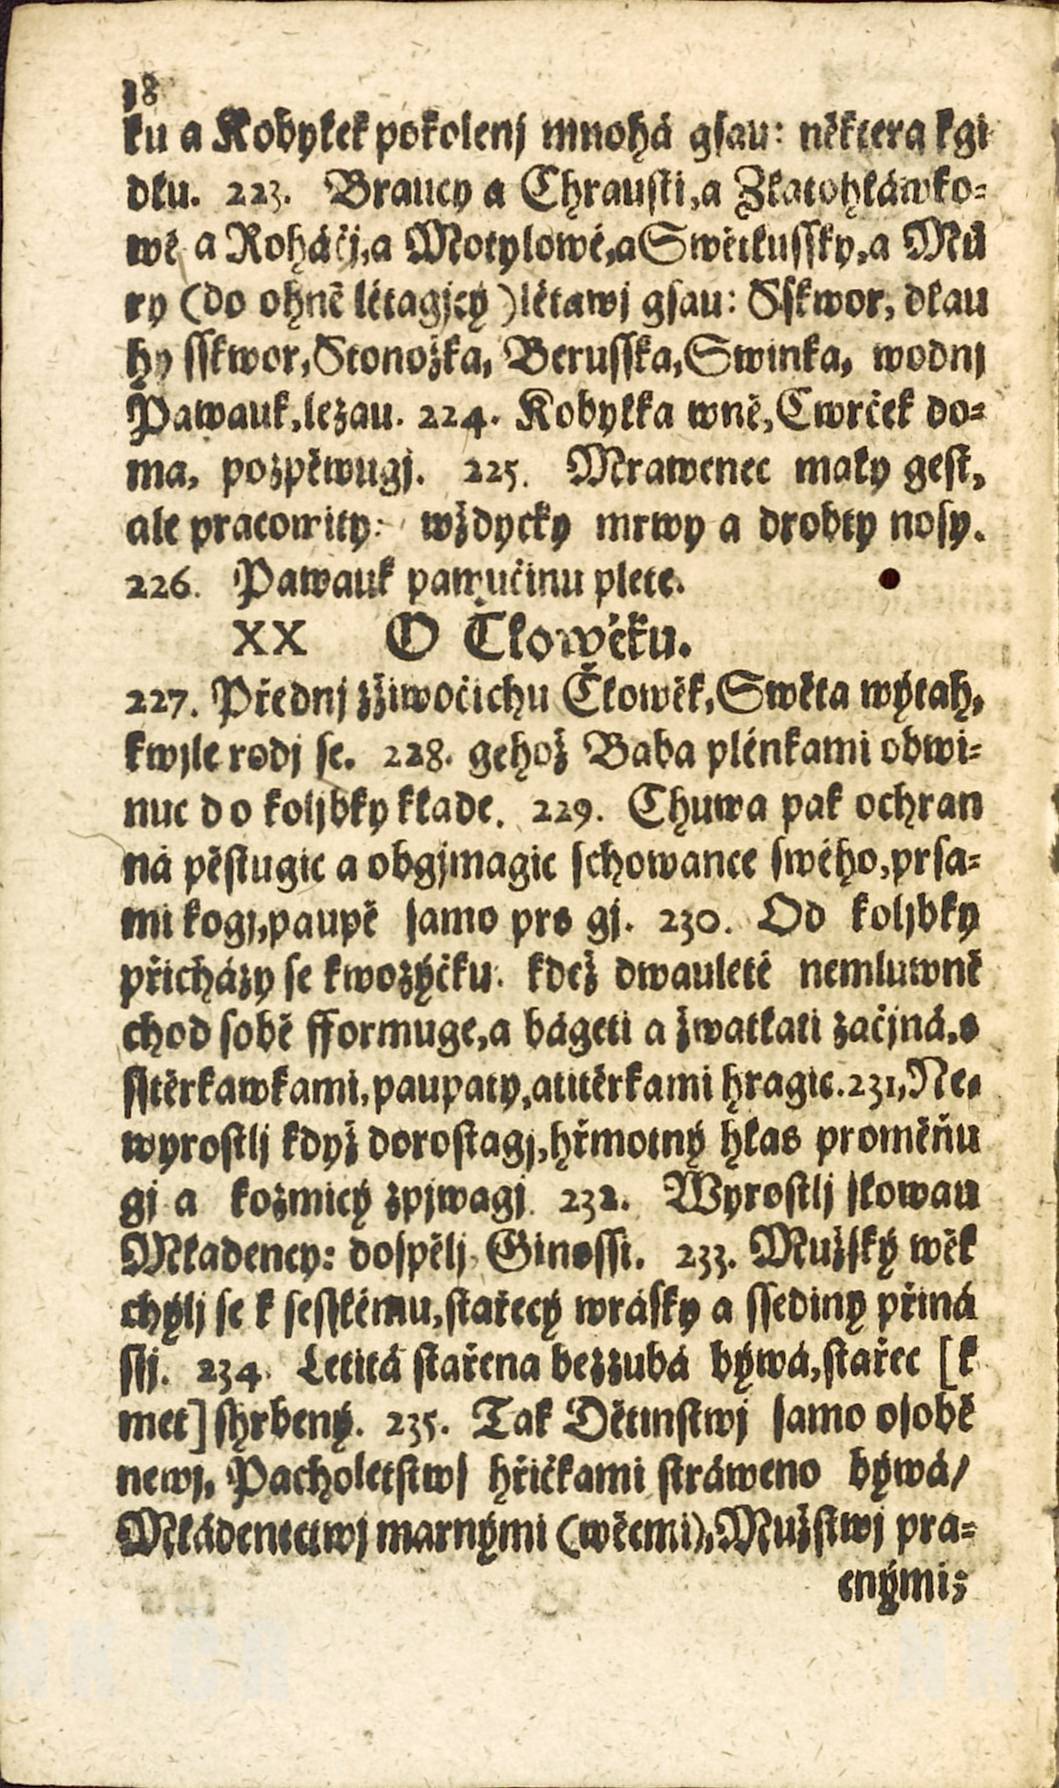 38
ku a Kobylek pokolenj mnohá gsau: některa kgi
dlu. 223. Braucy a Chrausti, a Zlatohláwko=
wě a Roháčj, a Motylowé, a Swětlussky, a Mů
ry (do ohně létagjcý) létawj gsau: Sskwor, dlau
hy sskwor, Stonožka, Berusska, Swinka, wodnj
Pawauk, lezau. 224. Kobylka wně, Cwrček do=
ma, pozpěwugj. 225. Mrawenec maly gest,
ale pracowity: wždycky mrwy a drobty nosy.
226. Pawauk pawučinu plete.
XX O Člowěku.
227. Přednj zžiwočichu Člowěk, Swěta wýtah,
kwjle rodj se. 228. gehož Baba plénkami obwi=
nuc do koljbky klade. 229. Chuwa pak ochran
ná pěstugic a obgjmagic schowance swého, prsa=
mi kogj, paupě samo prs gj. 230. Od koljbky
přicházy se kwozýčku. kdež dwauleté nemluwně
chod sobě fformuge, a bágeti a žwatlati začjná, s
sstěrkawkami, paupaty, a titěrkami hragic. 231, Ne=
wyrostlj když dorostagj, hřmotný hlas proměňu
gj a kozmicý zpjwagj. 232. Wyrostlj slowau
Mladency: dospělj Ginossi. 233. Mužský wěk
chýlj se k sesslému, stařecý wrásky a ssediny přiná
ssj. 234. Letitá stařena bezzubá býwá, stařec [k
met] shrbený. 235. Tak Dětinstwj samo osobě
newj, Pacholetstwj hřičkami stráweno býwá/
Mládenectwj marnými (wěcmi), Mužstwj pra=
cnými;